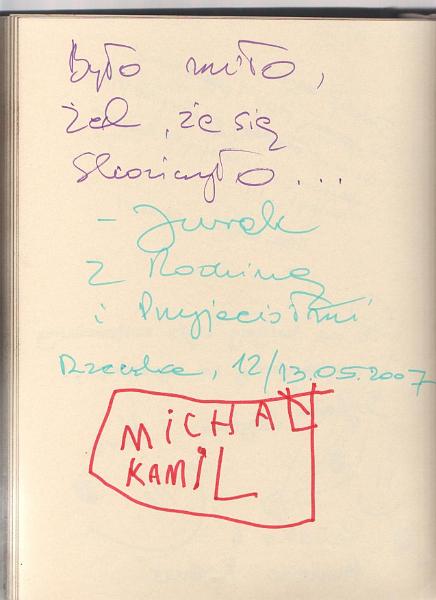 Było miło,
żal, że się
skończyło...
- Jurek
z Rodziną
i Przyjaciółmi
Rzeczka, 12/13.05.2007
MiCHAŁ
KAMiL